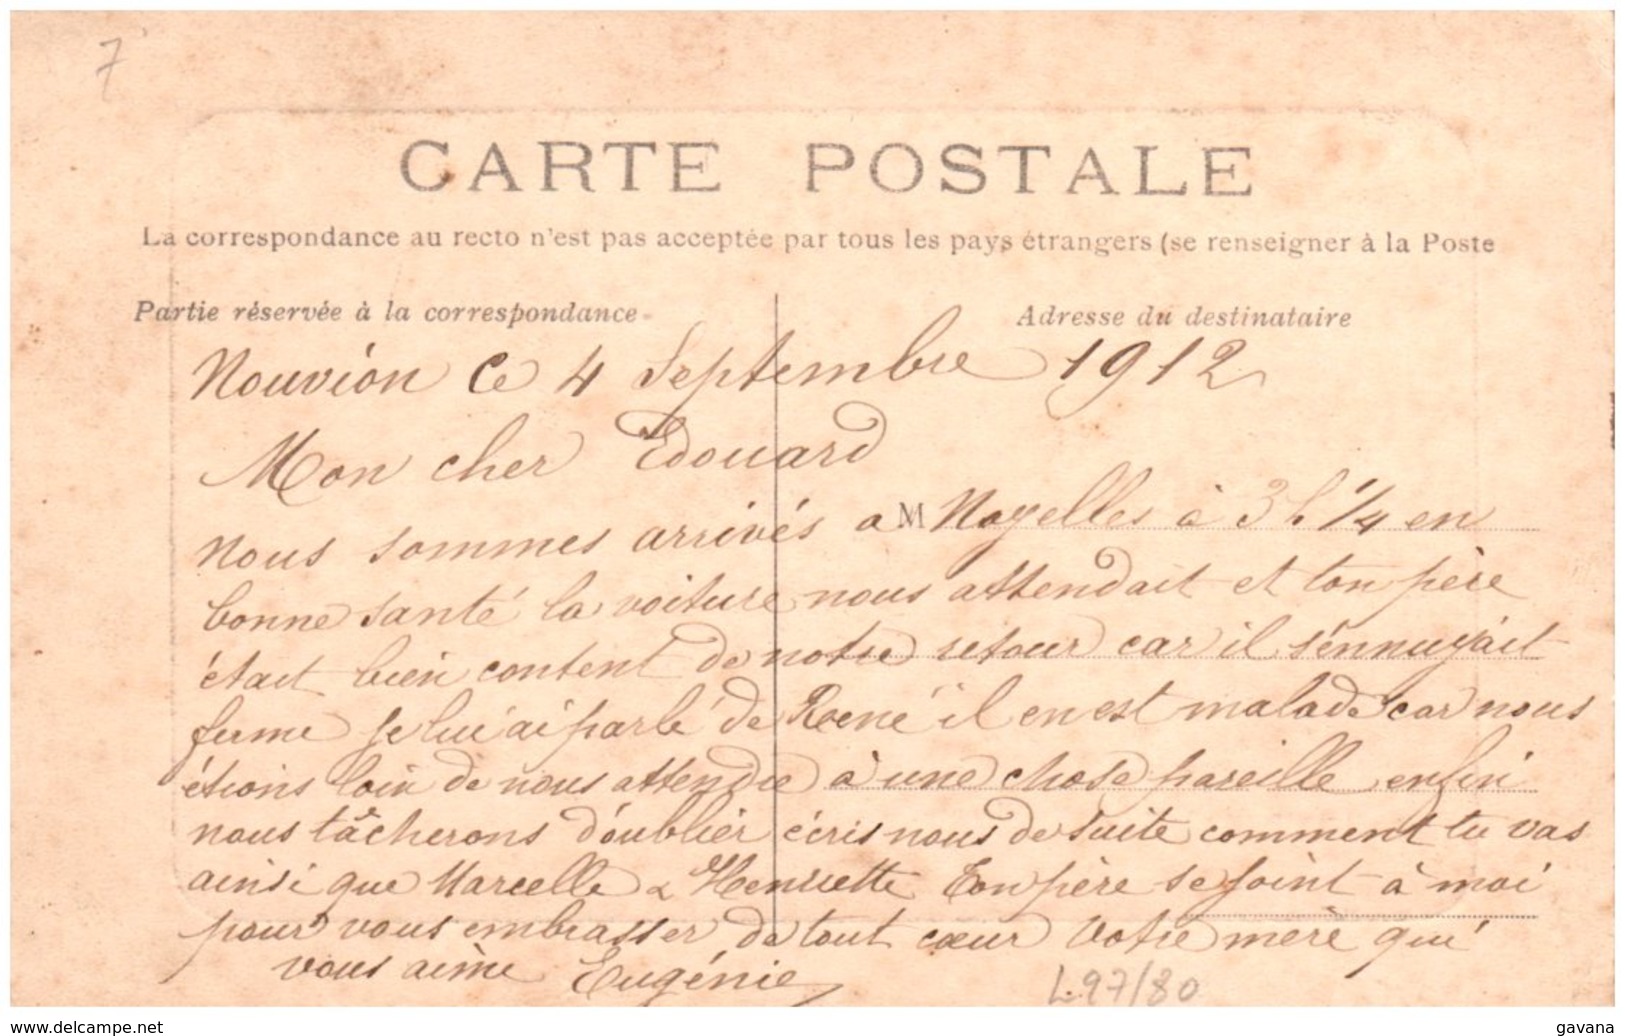 7
CARTE POSTALE
La correspondance au recto n'est pas acceptée par tous les pays étrangers (se renseigner à la Poste
Partie réservée à la correspondance
Adresse du destinataire
Nouvion Ce 4 Septembre 1912
Mon cher Edouard
nous sommes arrivés a M Noyelles à 3 h 1/4 en
bonne santé la voiture nous attendait et ton père
était bien content de notre retour car il s'ennuyait
ferme je lui ai parlé de René il en est malade car nous
étions loin de nous attendre à une chose pareille enfin
nous tâcherons d'oublier écris nous de suite comment tu vas
ainsi que Marcelle & Henriette Ton père se joint à moi
pour vous embrasser de tout cœur Votre mère qui
vous aime Eugénie
L97/80
www.delcampe.net
gavana